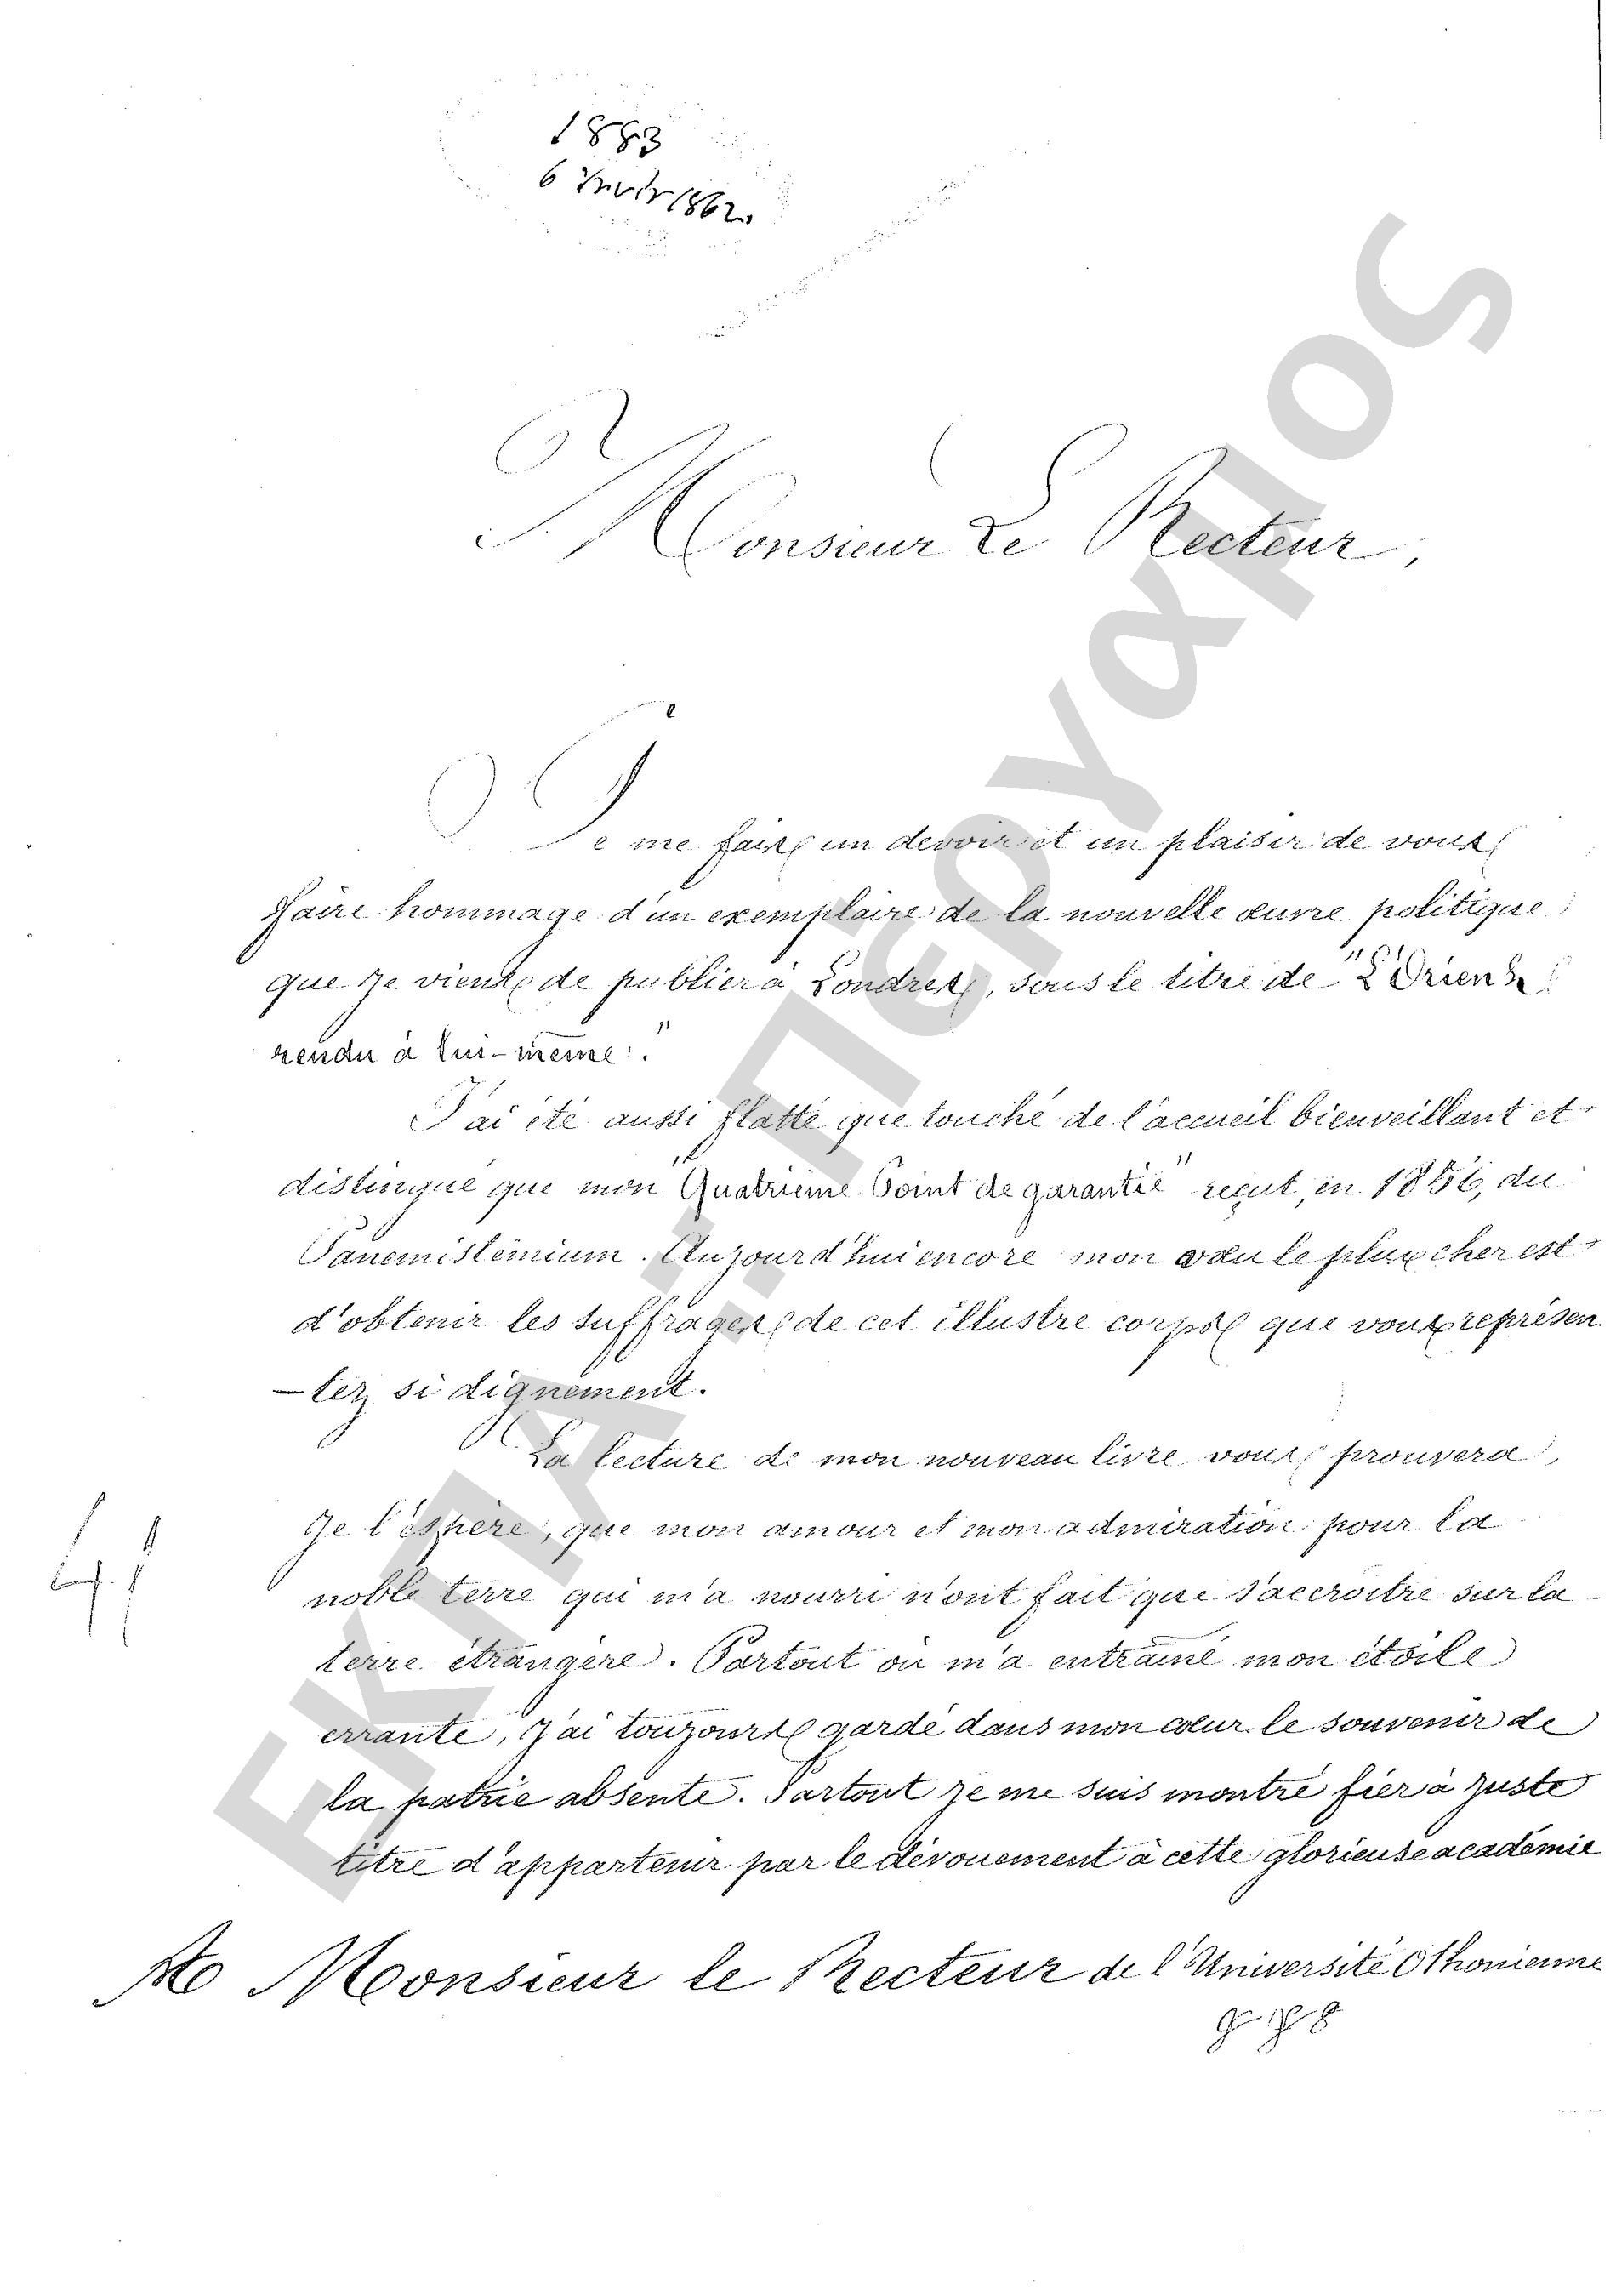 1883
6 1862
Monsieur Le Recteur,
Je me fais un devoir et un plaisir de vous
faire hommage d'un exemplaire de la nouvelle œuvre politique
que je viens de publier à Londres, sous le titre de "L'Orient
rendu à lui-même."
J'ai été aussi flatté que touché de l'accueil bienveillant et
distingué que mon "Quatrième Point de garantie" reçut, en 1856, du
Panemistémium. Aujourd'hui encore mon vœu le plus cher est
d'obtenir les suffrages de cet illustre corps que vous représen
-tez si dignement.
La lecture de mon nouveau livre vous prouvera,
je l'espère, que mon amour et mon admiration pour la
noble terre qui m'a nourri n'ont fait que s'accroître sur la
terre étrangère. Partout où m'a entraîné mon étoile
errante, j'ai toujours gardé dans mon cœur le souvenir de
la patrie absente. Partout je me suis montré fier à juste
titre d'appartenir par le dévouement à cette glorieuse académie
A Monsieur le Recteur de l'Université Othonienne
ΕΚΠΑ - Πέργαμος